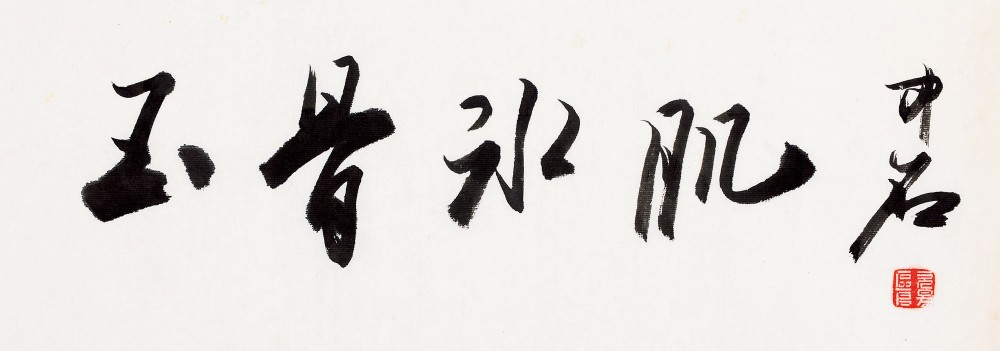 玉骨冰肌
中石